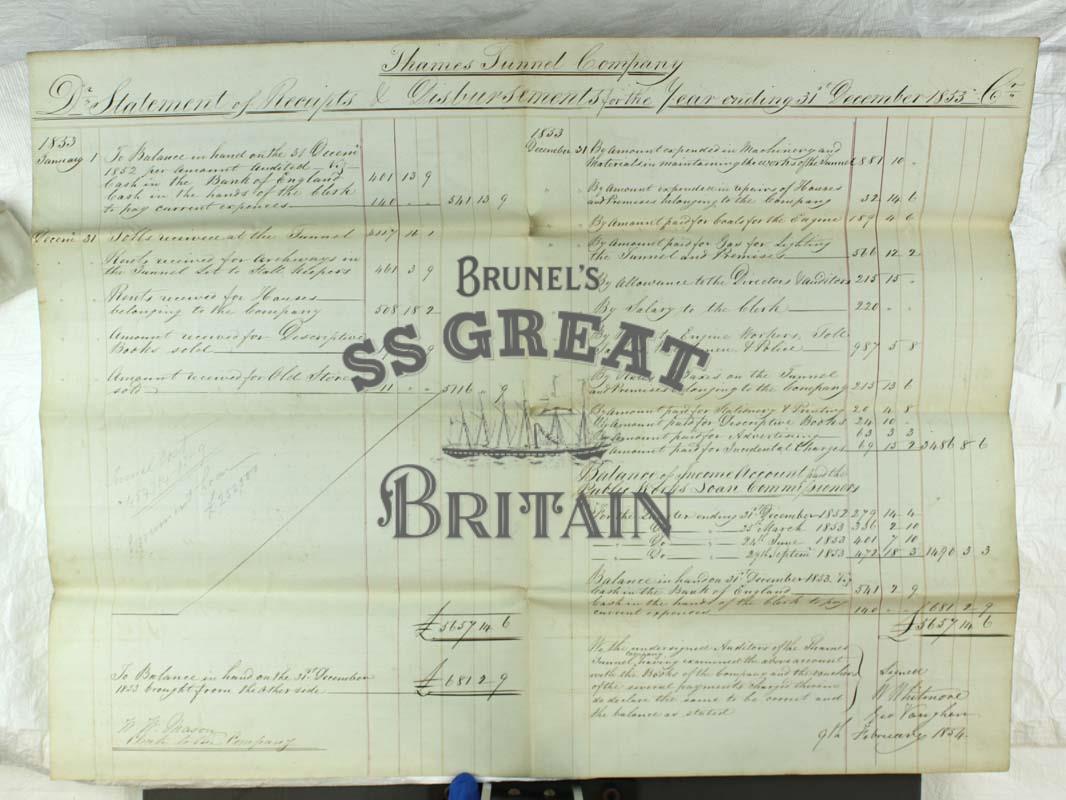 Thames Tunnel Company
Dr Statement of Receipts & Disbursements for the Year ending 31st December 1853 Cr
1853
January 1 To Balance in hand on the 31 Decemr
1852 per Amount Audited Viz
Cash in the Bank of England 401 13 9
Cash in the hands of the Clerk
to pay current expences 140 - - 541 13 9
Decemr 31 Tolls received at the Tunnel
Rents received for Archways in
the Tunnel Let to Stall Keepers 461 3 9
Rents received for Houses
belonging to the Company 508 18 2
Amount received for Descriptive
Books sold
Amount received for Old Stores
sold 11 - - 5116 - 9
£5657 14 6
To Balance in hand on the 31st December
1853 brought from the other side £681 2 9
Clerk to the Company
1853
December 31 By Amount expended in Machinery and
Materials in maintaining the works of the Tunnel 881 10 -
By Amount expended in repairs of Houses
and Premises belonging to the Company 32 14 6
By Amount paid for Coals for the Engine 189 4 6
By Amount paid for Gas for Lighting
the Tunnel and Premises 566 12 2
By Allowance to the Directors & Auditors 215 15 -
By Salary to the Clerk 220 - -
Engine Keepers, Toll
& Police 987 5 8
Taxes on the Tunnel
and Premises belonging to the Company 215 13 6
By Amount paid for Stationery & Printing 20 4 8
By Amount paid for Descriptive Books 24 10 -
By Amount paid for Advertising 63 3 3
By Amount paid for Incidental Charges 69 15 2 3486 8 6
Balance of Income Account paid the
Public Works Loan Commissioners
For the Quarter ending 31st December 1852 279 14 4
Do 25th March 1853 336 2 10
Do 24th June 1853 401 7 10
Do 29th Septemr 1853 472 18 3 1490 3 3
Balance in hand on 31st December 1853 Viz
Cash in the Bank of England 541 2 9
Cash in the hands of the Clerk to pay
current expences 140 - - 681 2 9
£5657 14 6
We the undersigned Auditors of the Thames
Tunnel Company having examined the above account
with the Books of the Company and the vouchers
of the several payments charged therein
do declare the same to be correct and
the balance as stated
Signed
W Whitmore
Geo Vaughan
9th February 1854.
BRUNEL'S
SS GREAT
BRITAIN